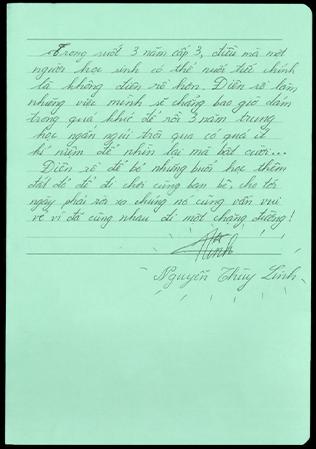 Trong suốt 3 năm cấp 3, điều mà một
người học sinh có thể nuối tiếc chính
là không điên rồ hơn. Điên rồ làm
những việc mình sẽ chẳng bao giờ dám
trong quá khứ để rồi 3 năm trung
học ngắn ngủi trôi qua có quá ít
kỉ niệm để nhìn lại mà bật cười...
Điên rồ để bỏ những buổi học thêm
đắt đỏ để đi chơi cùng bạn bè, cho tới
ngày phải rời xa chúng nó cũng vẫn vui
vẻ vì đã cùng nhau đi một chặng đường!
Linh
Nguyễn Thùy Linh